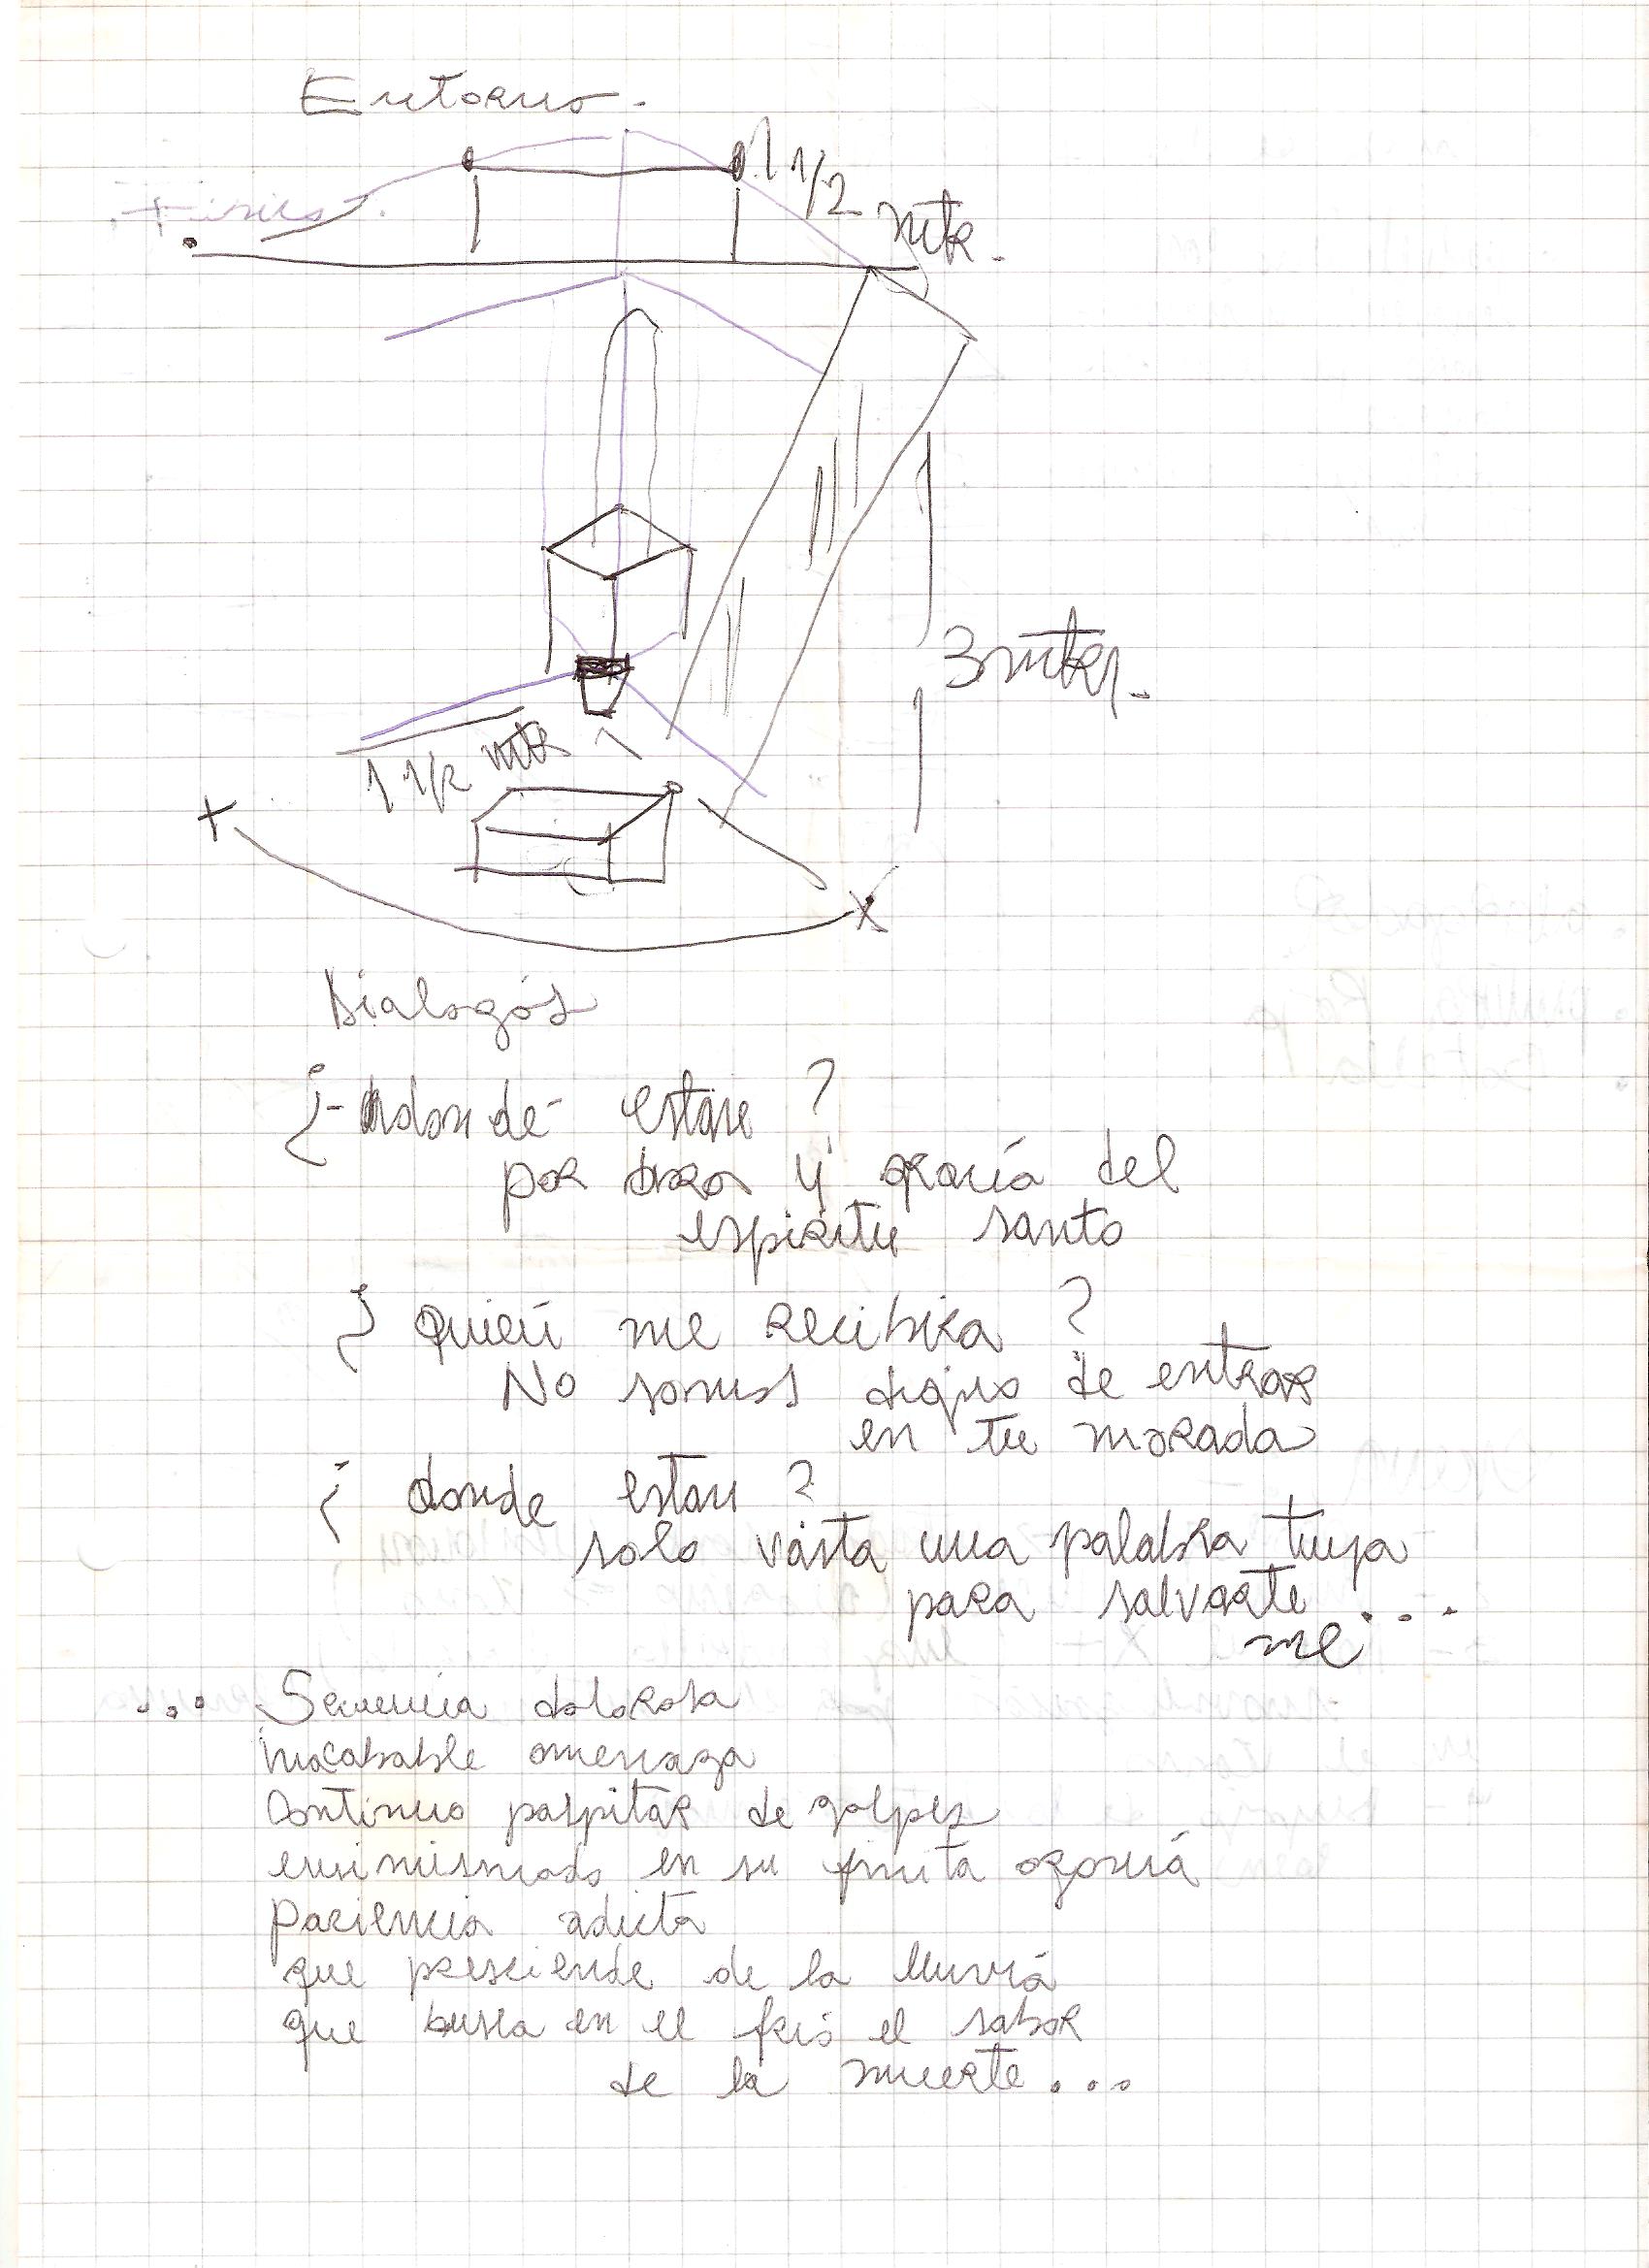 Entorno.
1 1/2
mtr.
3 mtrs.
1 1/2 mtr
Dialogós
¿-adonde- estare ?
por obra y gracía del
espiritu santo
¿ quien me recibira ?
No somos digno de entrar
en tu morada
¿ donde estan ?
solo vasta una palabra tuya
para salvarte ...
me
... Secuencia dolorosa
inacabable amenaza
Continuo palpitar de golpes
ensimismado en su finita agonía
paciencia adicta
que presciende de la lluviá
que busca en el frió el sabor
de la muerte ...